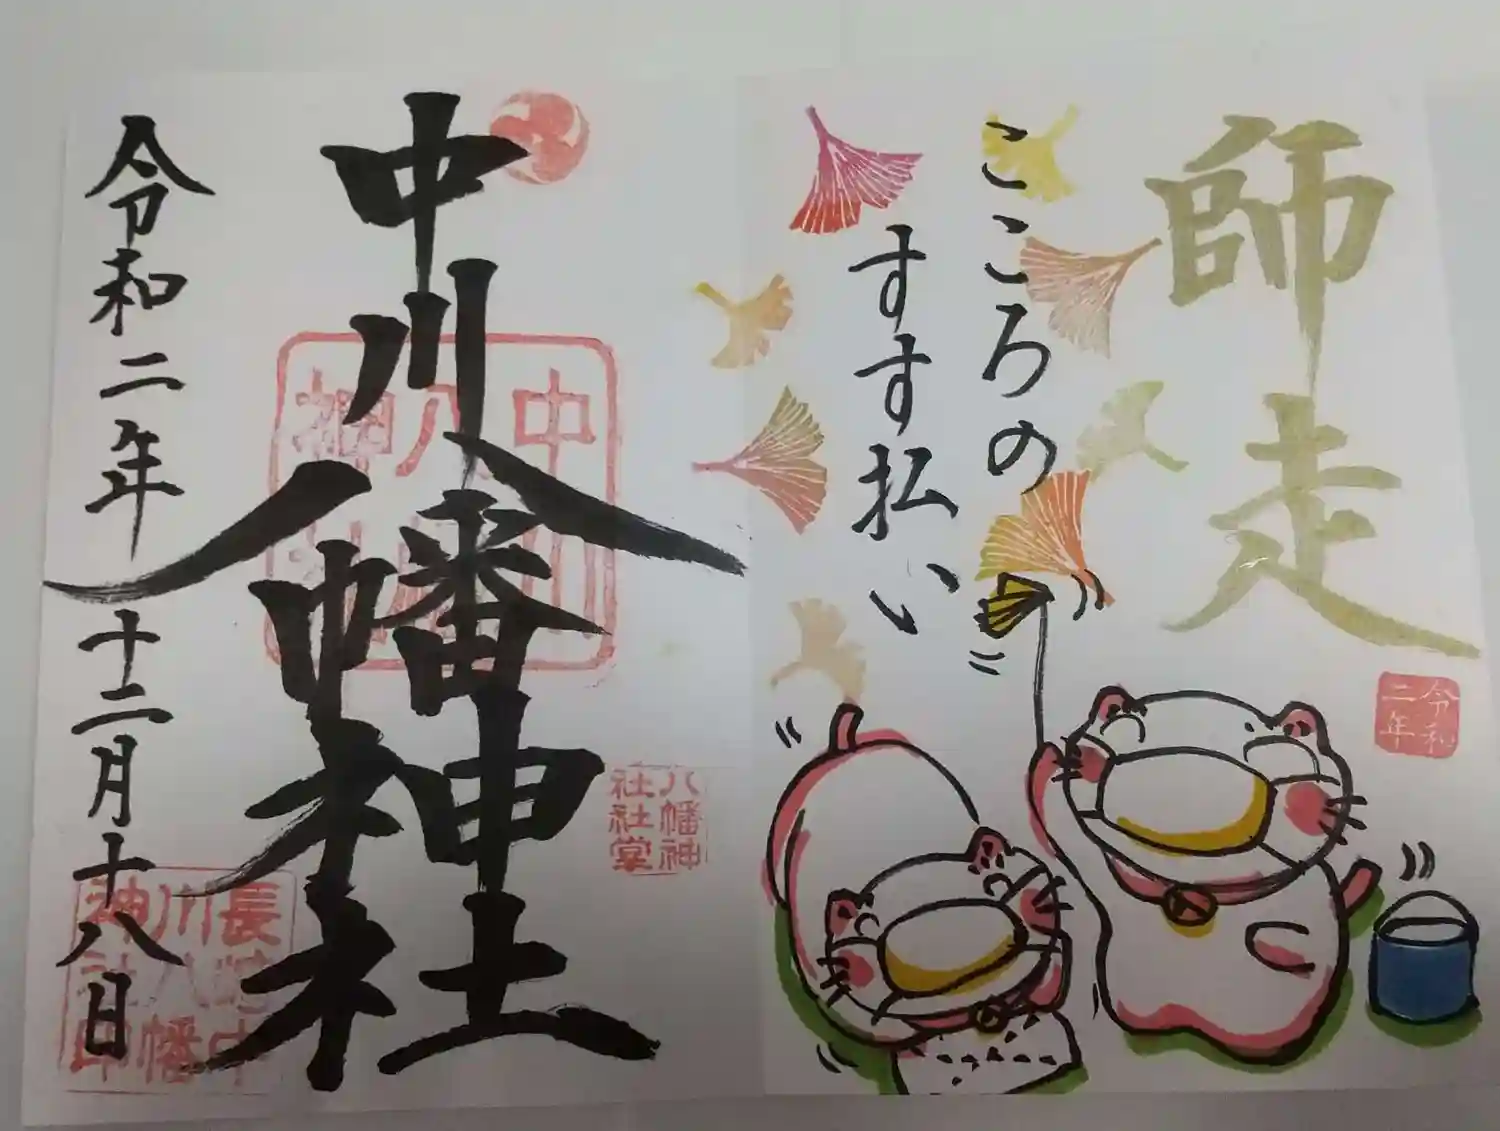 師走
令和
二年
こころの
すす払い
中川八幡神社
中川
八幡
神社
八幡神
社社堂
令和二年十二月十八日
長崎中
川八幡
神社印